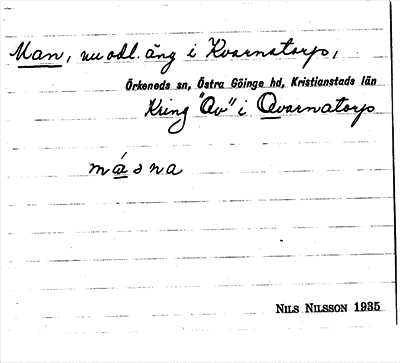 Man, nu odl. äng i Kvarnatorp,
Örkeneds sn, Östra Göinge hd, Kristianstads län
Kring "Qv" i Qvarnatorp
NILS NILSSON 1935